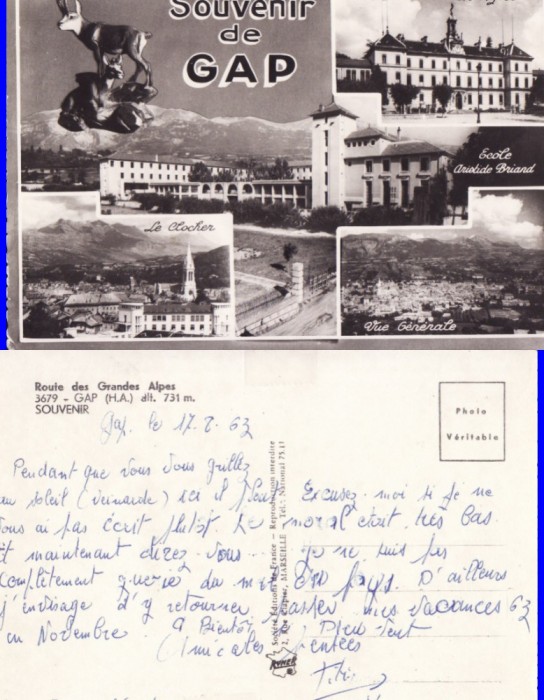 Souvenir
de
GAP
Ecole
Aristide Briand
Le Clocher
Vue Générale
Route des Grandes Alpes
3679 - GAP (H.A.) alt. 731 m.
SOUVENIR
Photo
Véritable
Gap. le 17.8.63
Pendant que vous vous grillez
au soleil (veinarde) ici il pleut
vous ai pas écrit plutôt Le
Et maintenant direz-vous
complètement guérie du
j'envisage d'y retourner
en Novembre. A Bientôt
Excusez-moi si je ne
moral était très bas.
je ne suis pas
pays. D'ailleurs
passer mes vacances 63
si Dieu veut
Amicales pensées
Société Editions de France — Reproduction interdite
MARSEILLE Tél.: National 75.41